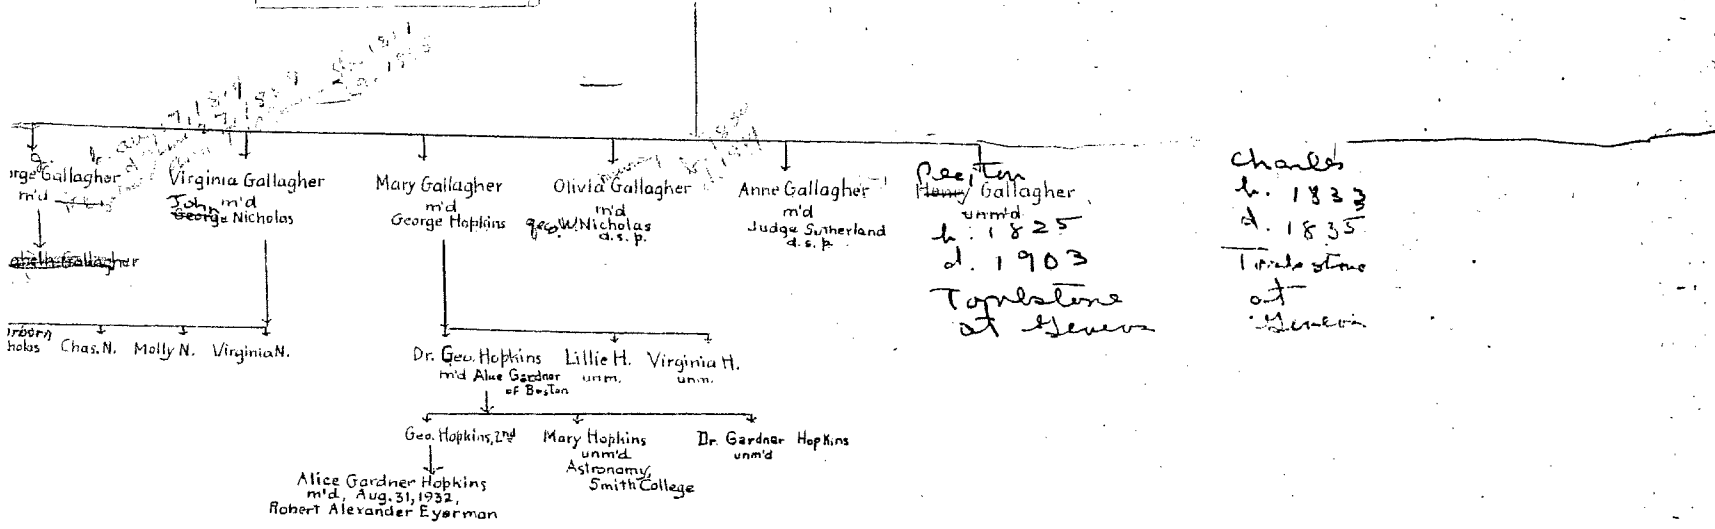 Gallagher
m'd
Gallagher
Virginia Gallagher
m'd
John
George Nicholas
Mary Gallagher
m'd
George Hopkins
Olivia Gallagher
m'd
Geo. W. Nicholas
d.s.p.
Anne Gallagher
m'd
Judge Sutherland
d.s.p.
Peyton
Henry Gallagher
unm'd
b. 1825
d. 1903
Tombstone
at Geneva
Charles
b. 1833
d. 1835
Tombstone
at
Geneva
Chas. N.
Molly N.
Virginia N.
Dr. Geo. Hopkins
m'd Alice Gardner
of Boston
Lillie H.
unm.
Virginia H.
unm.
Geo. Hopkins, 2nd
Mary Hopkins
unm'd
Astronomy,
Smith College
Dr. Gardner Hopkins
unm'd
Alice Gardner Hopkins
m'd, Aug. 31, 1932,
Robert Alexander Eyerman